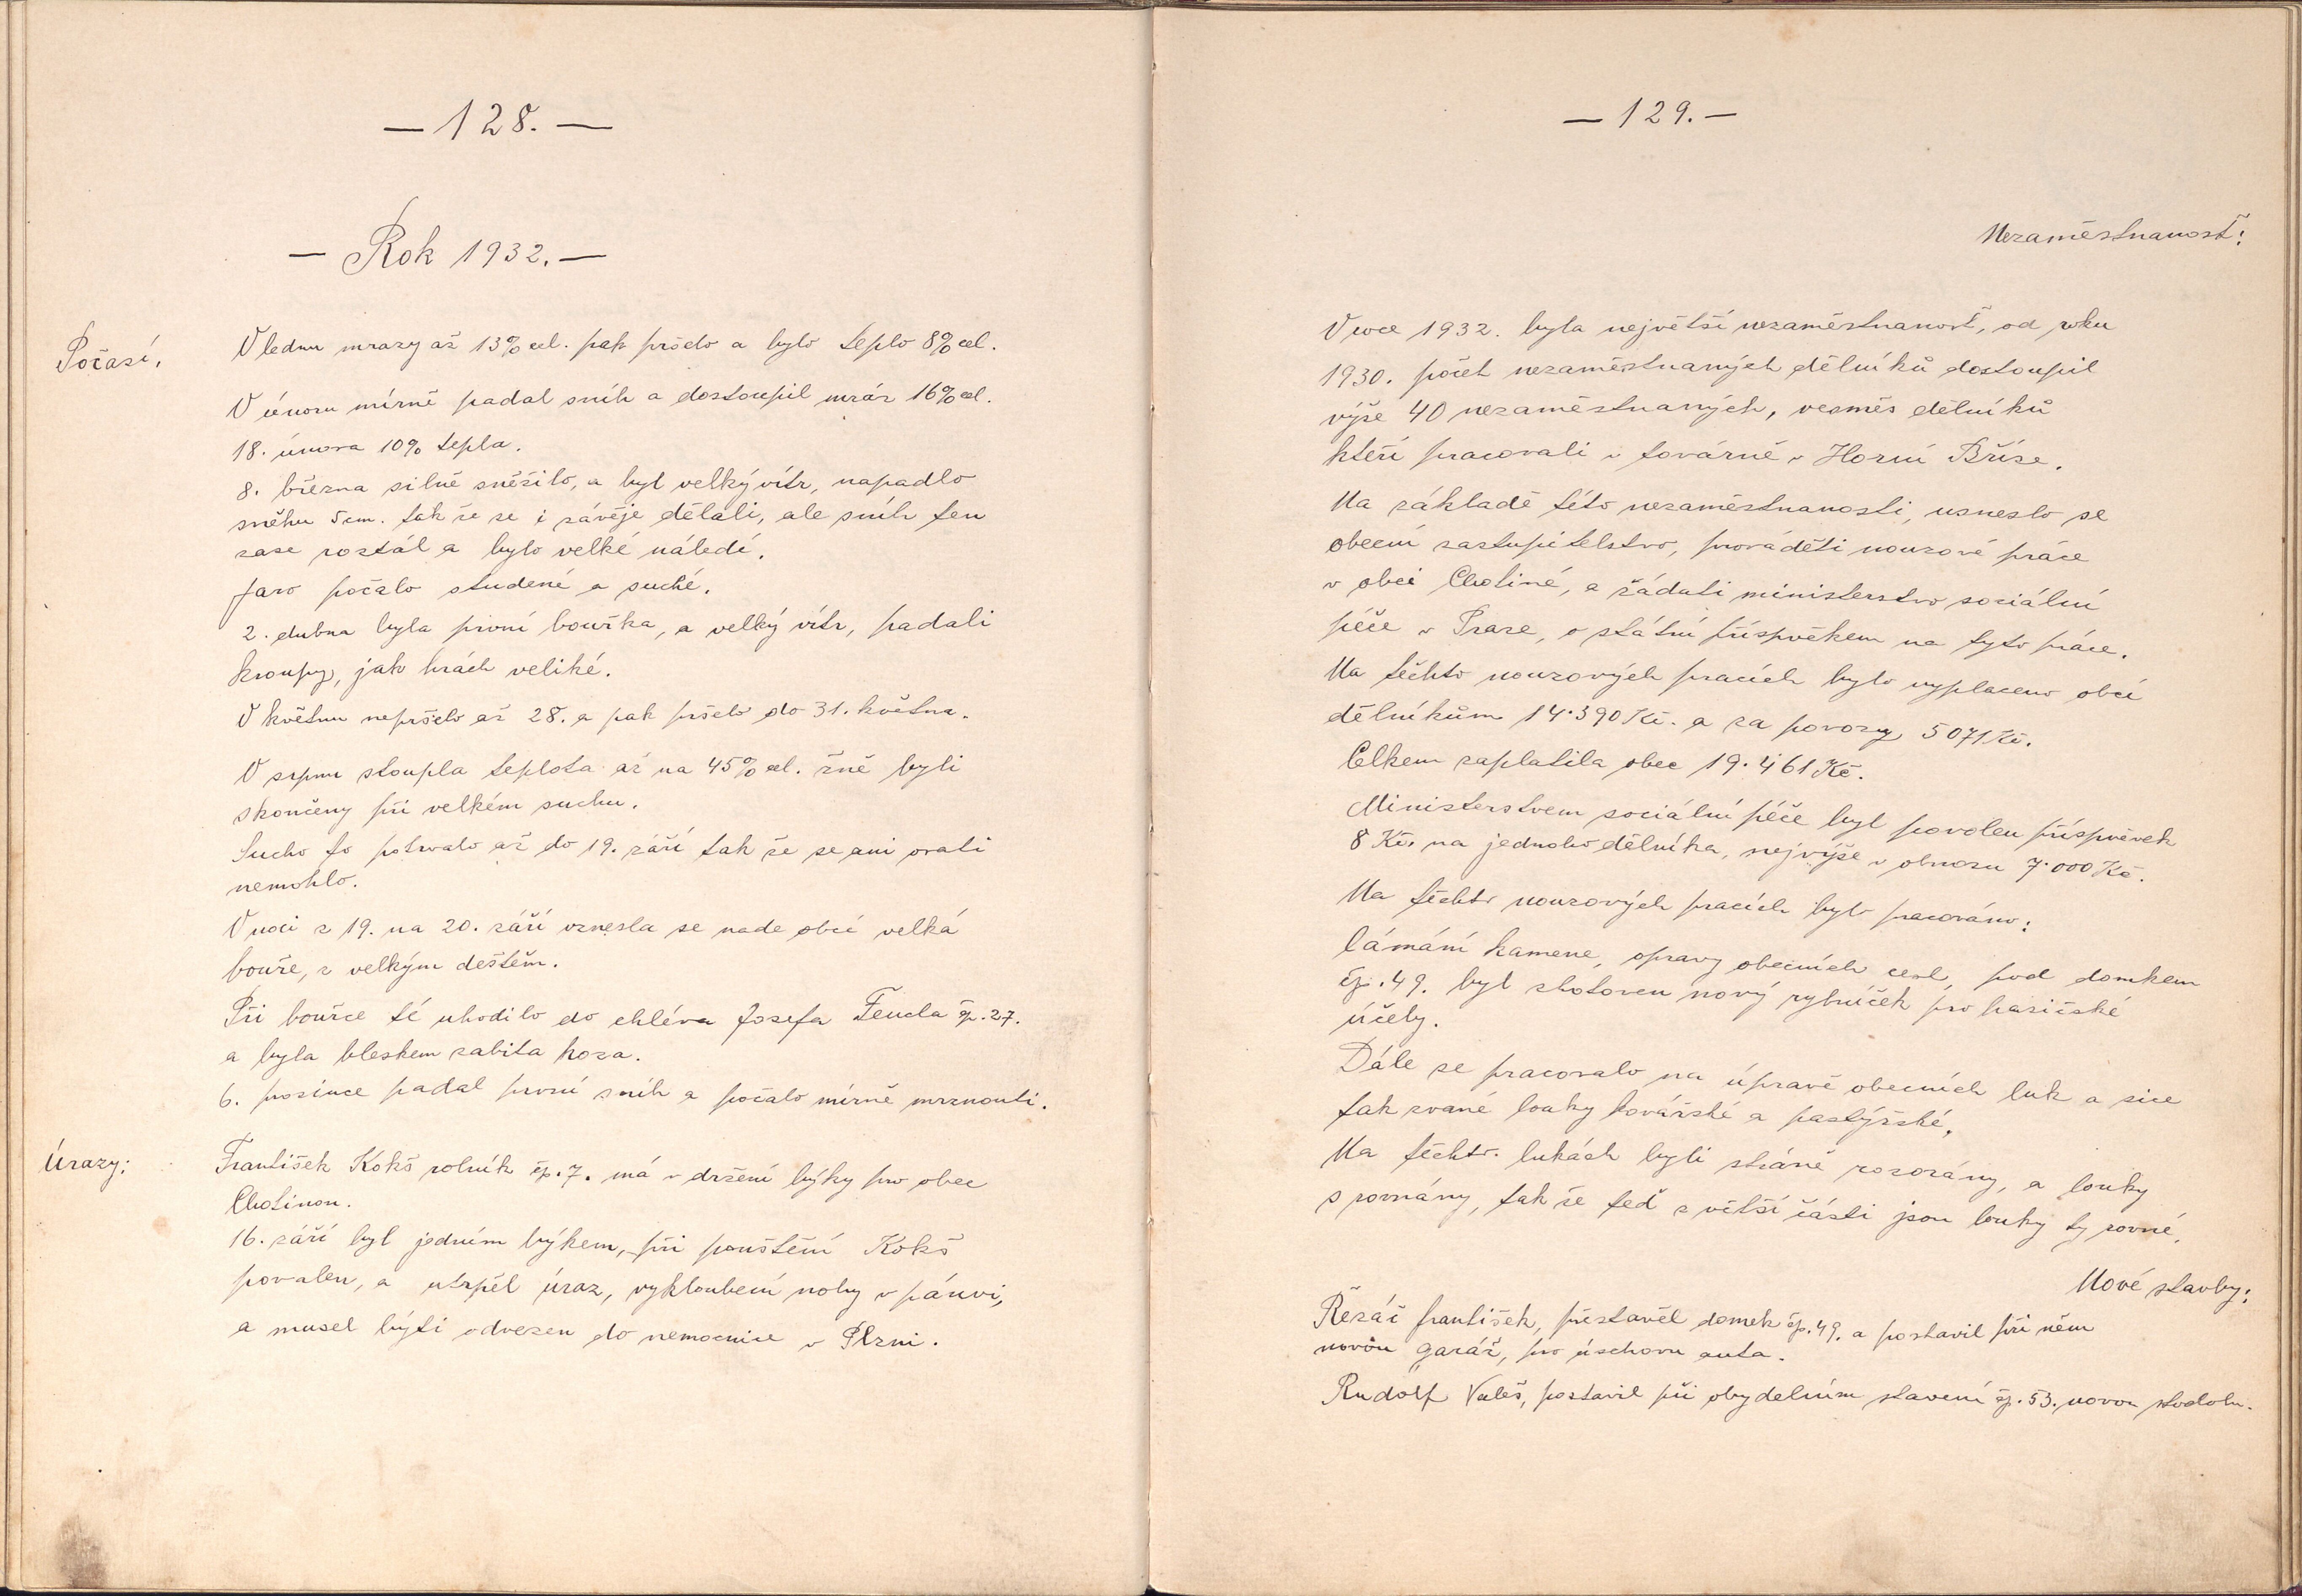 — 128. —
— Rok 1932. —
Počasí,
V lednu mrazy až 13% cel. pak pršelo a bylo teplo 8% cel.
V únoru mírně padal sníh a dostoupil mráz 16% cel.
18. února 10% tepla.
8. března silně sněžilo, a byl velký vítr, napadlo
sněhu 5 cm. tak že se i závěje dělali, ale sníh ten
zase roztál a bylo velké náledí.
Jaro počalo studené a suché.
2. dubna byla první bouřka, a velký vítr, padali
kroupy, jak hrách veliké.
V květnu nepršelo až 28. a pak pršelo do 31. května.
V srpnu stoupla teplota až na 45% cel. žně byli
skončeny při velkém suchu.
Sucho to potrvalo až do 19. září tak že se ani orati
nemohlo.
V noci z 19. na 20. září vznesla se nade obcí velká
bouře, s velkým deštěm.
Při bouřce té uhodilo do chléva Josefa Fencla čp. 27.
a byla bleskem zabita koza.
6. prosince padal první sníh a počalo mírně mrznouti.
Úrazy:
František Kokš rolník čp. 7. má v držení býky pro obec
Chotinou.
16. září byl jedním býkem, při pouštění Kokš
povalen, a utrpěl úraz, vykloubení nohy v pánvi,
a musel býti odvezen do nemocnice v Plzni.
— 129. —
Nezaměstnanosť:
V roce 1932. byla největší nezaměstnanosť, od roku
1930. počet nezaměstnaných dělníků dostoupil
výše 40 nezaměstnaných, vesměs dělníků
kteří pracovali v továrně v Horní Bříze.
Na základě této nezaměstnanosti, usneslo se
obecní zastupitelstvo, prováděti nouzové práce
v obci Chotiné, a žádati ministerstvo sociální
péče v Praze, o státní příspěvkem na tyto práce.
Na těchto nouzových pracích bylo vyplaceno obcí
dělníkům 14.390 Kč. a za povozy 5071 Kč.
Celkem zaplatila obec 19.461 Kč.
Ministerstvem sociální péče byl povolen příspěvek
8 Kč. na jednoho dělníka, nejvýše v obnosu 7.000 Kč.
Na těchto nouzových pracích bylo pracováno:
lámání kamene, opravy obecních cest, pod domkem
čp. 49. byl zhotoven nový rybníček pro hasičské
účely.
Dále se pracovalo na úpravě obecních luk a sice
tak zvané louky kovářské a pastýřské,
Na těchto. lukách byli stráně rozorány, a louky
srovnány, tak že teď z větší části jsou louky ty rovné.
Nové stavby:
Řezáč František, přistavěl domek čp. 49. a postavil při něm
novou garáž, pro úschovu auta.
Rudolf Valeš, postavil při obydelním stavení čp. 53. novou stodolu.